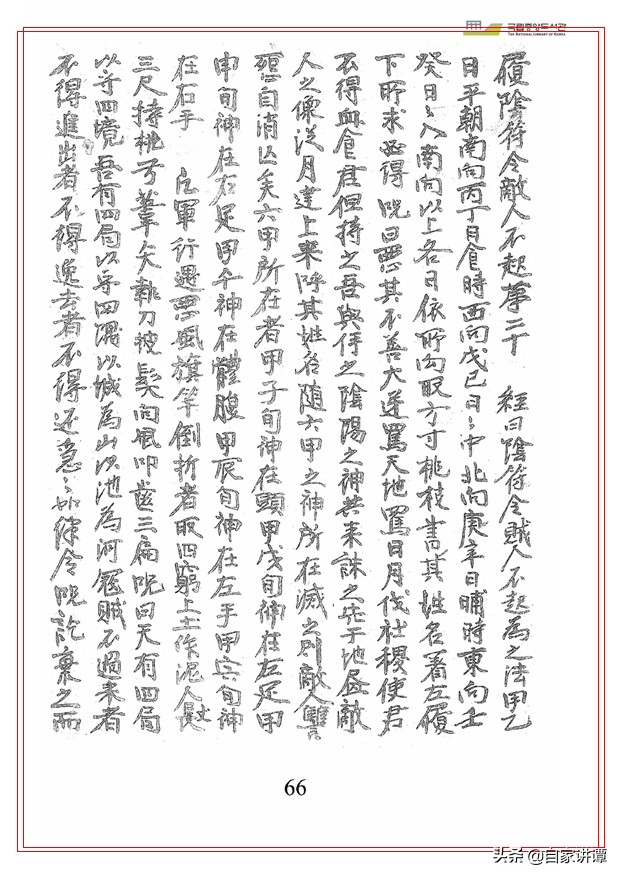 국립중앙도서관
THE NATIONAL LIBRARY OF KOREA
履陰符令敵人不起第二十 經曰陰符令賊人不起為之法甲乙
日平朝南向丙丁日食時西向戊己日日中北向庚辛日晡時東向壬
癸日日入南向以上各日依所向取方寸桃枝書其姓名著左履
下所求必得咒曰惡其不善大逆罵天地罵日月伐社稷使君
不得血食君但持之吾與俘之陰陽之神共来誅之先于地畫敵
人之像從月建上来呼其姓名随六甲之神所在滅之則敵人雙
自消亡矣六甲所在者甲子旬神在頭甲戌旬神在左足甲
申旬神在右足甲午神在體腹甲辰旬神在左手甲寅旬神
在右手 凡軍行遇惡風旗竿倒折者取四窮上土作泥人長
三尺持桃弓葦矢執刀披髮向風叩齒三扁咒曰天有四局
以守四境吾有四局以守四隅以城為山以池為河冦賊不過来者
不得進出者不得逸去者不得还急々如律令咒訖棄之而
66
头条 @自家讲谭